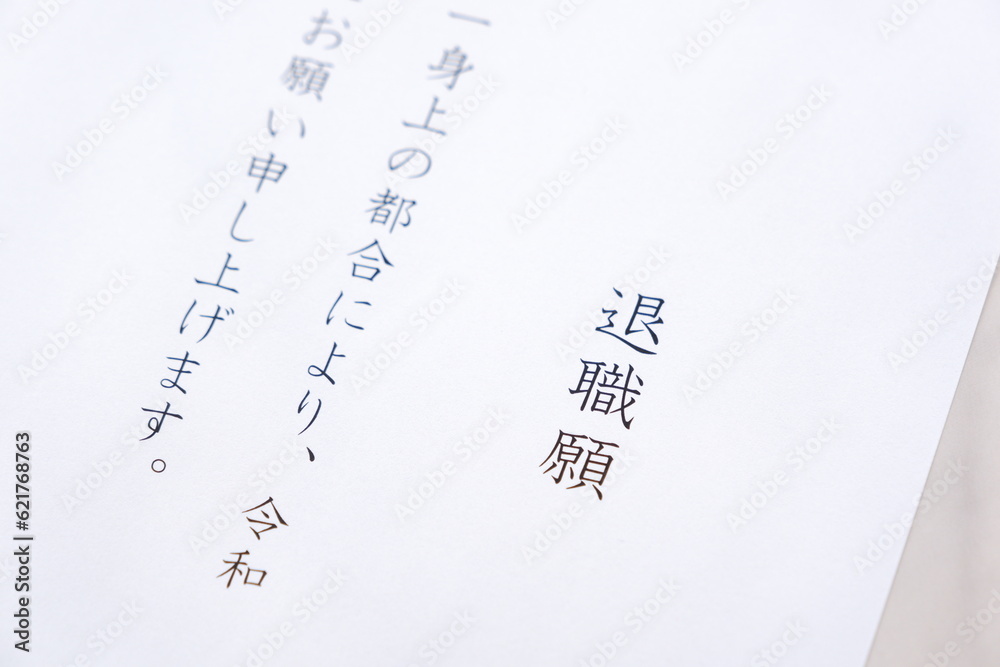 退職願
一身上の都合により、令和
お願い申し上げます。
Adobe Stock | #621768763